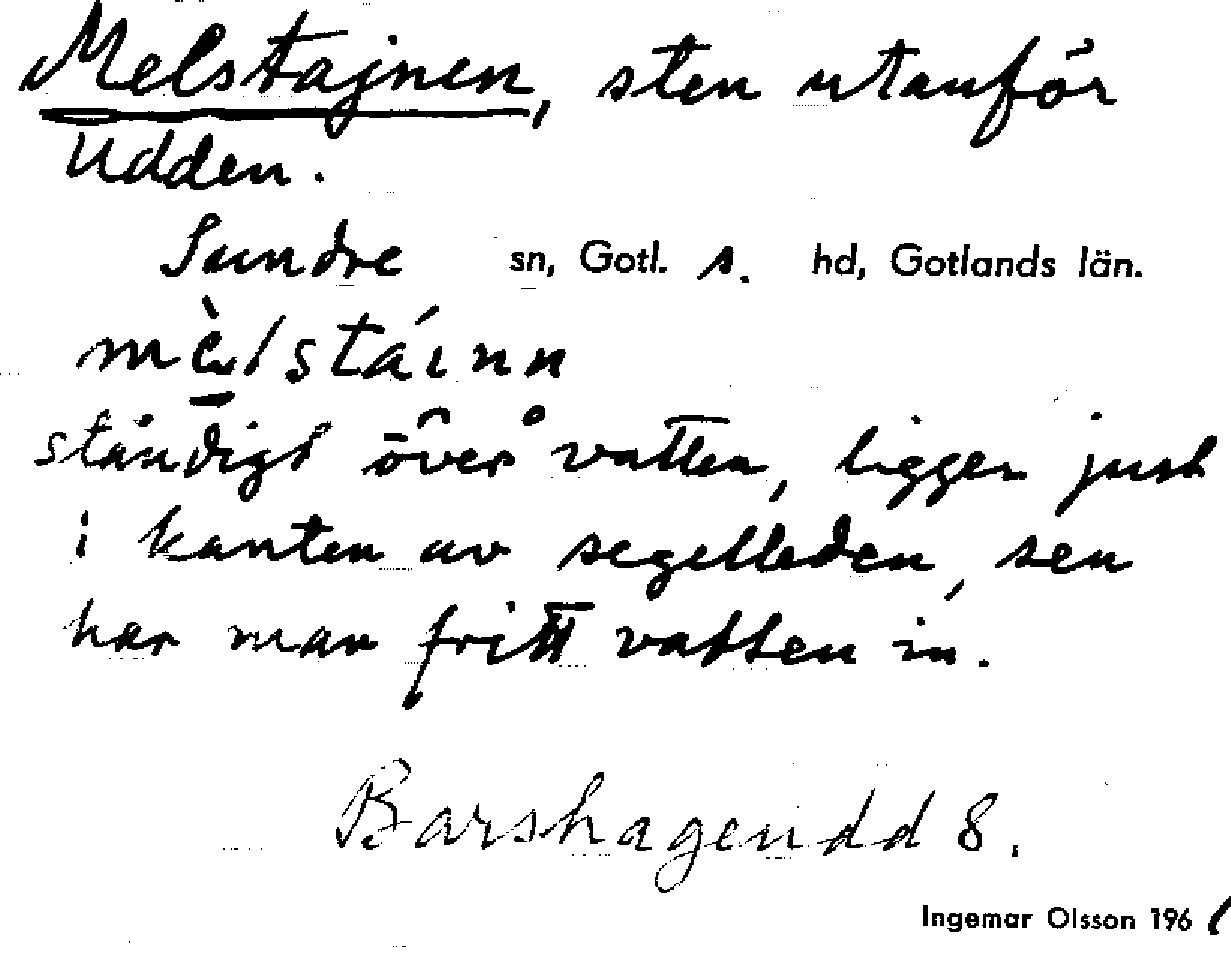 Melstajnen, sten utanför
Udden.
Sundre sn, Gotl. s. hd, Gotlands län.
mèlstáinn
ständigt över vatten, ligger just
i kanten av segelleden, sen
har man fritt vatten in.
Barshageudd 8.
Ingemar Olsson 1961